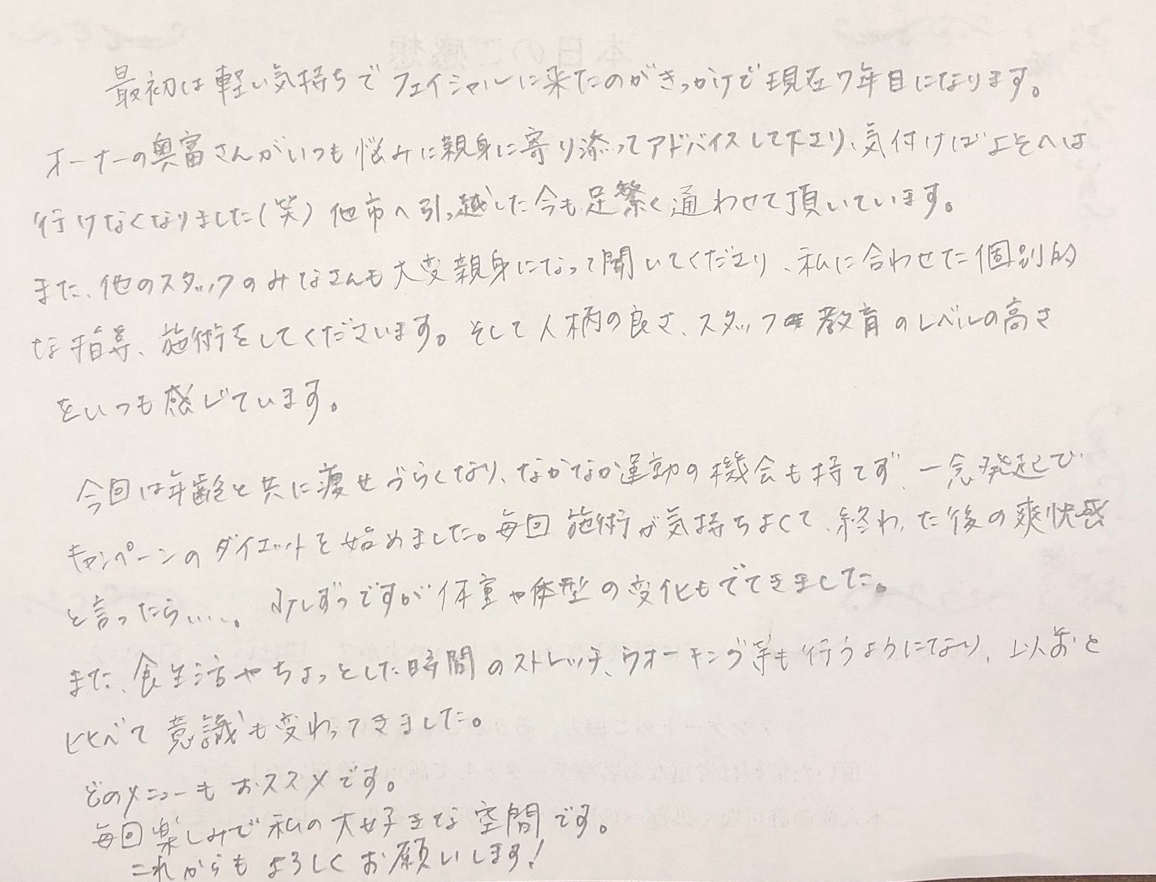 最初は軽い気持ちでフェイシャルに来たのがきっかけで現在7年目になります。
オーナーの奥富さんがいつも悩みに親身に寄り添ってアドバイスして下さり、気付けばよそへは
行けなくなりました(笑)他市へ引っ越した今も足繁く通わせて頂いています。
また、他のスタッフのみなさんも大変親身になって聞いてくださり、私に合わせた個別的
な指導、施術をしてくださいます。そして人柄の良さ、スタッフ教育のレベルの高さ
をいつも感じています。
今回は年齢と共に痩せづらくなり、なかなか運動の機会も持てず、一念発起で
キャンペーンのダイエットを始めました。毎回施術が気持ちよくて、終わった後の爽快感
と言ったら….。少しずつですが体重や体型の変化もでてきました。
また、食生活やちょっとした時間のストレッチ、ウオーキング等も行うようになり、以前と
比べて意識も変わってきました。
どのメニューもおススメです。
毎回楽しみで私の大好きな空間です。
これからもよろしくお願いします!
本日のご感想